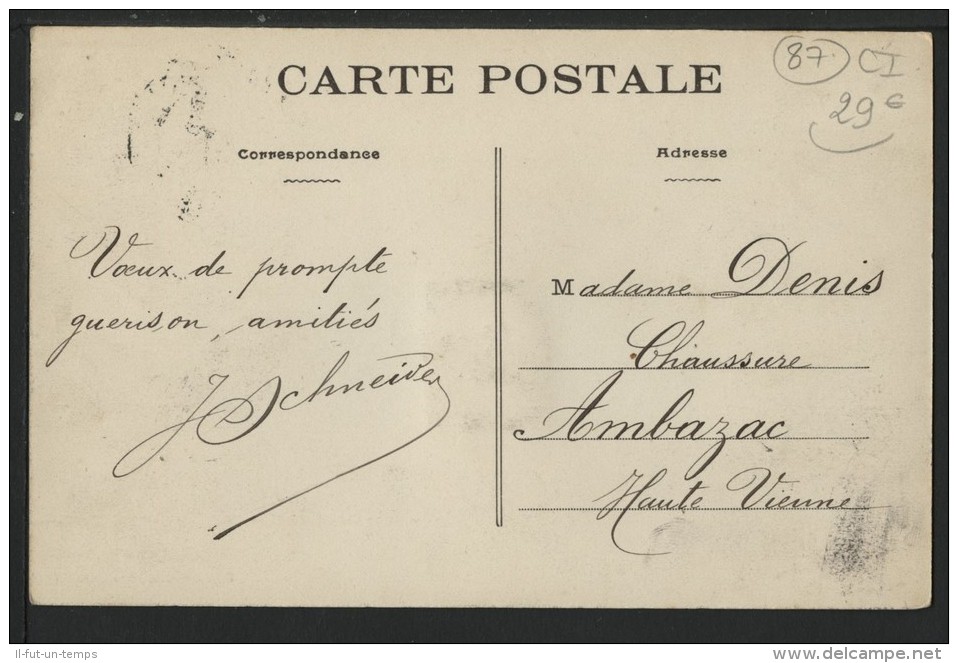 CARTE POSTALE
87 CI
29 €
Correspondance
Adresse
Vœux de prompte
guerison, amitiés
J Schneider
Madame Denis
Chaussure
Ambazac
Haute Vienne
Il-fut-un-temps
delcampe.net